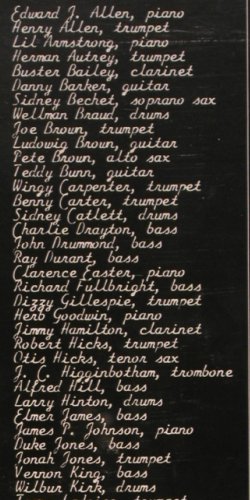 Edward J. Allen, piano
Henry Allen, trumpet
Lil Armstrong, piano
Herman Autrey, trumpet
Buster Bailey, clarinet
Danny Barker, guitar
Sidney Bechet, soprano sax
Wellman Braud, drums
Joe Brown, trumpet
Ludowig Brown, guitar
Pete Brown, alto sax
Teddy Bunn, guitar
Wingy Carpenter, trumpet
Benny Carter, trumpet
Sidney Catlett, drums
Charlie Drayton, bass
John Drummond, bass
Ray Durant, bass
Clarence Easter, piano
Richard Fullbright, bass
Dizzy Gillespie, trumpet
Herb Goodwin, piano
Jimmy Hamilton, clarinet
Robert Hicks, trumpet
Otis Hicks, tenor sax
J. C. Higginbotham, trombone
Alfred Hill, bass
Larry Hinton, drums
Elmer James, bass
James P. Johnson, piano
Duke Jones, bass
Jonah Jones, trumpet
Vernon King, bass
Wilbur Kirk, drums